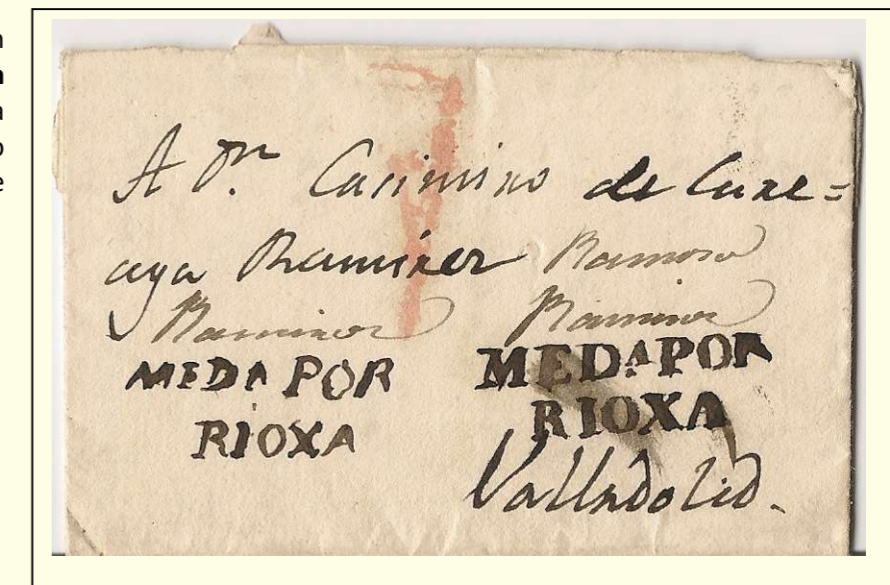 n
n
a
o
e
A Dn. Casimiro de
aya Ramirez Ramoro
Raminez Ramirez
MEDA POR
RIOXA
MEDA POR
RIOXA
Valladolid.